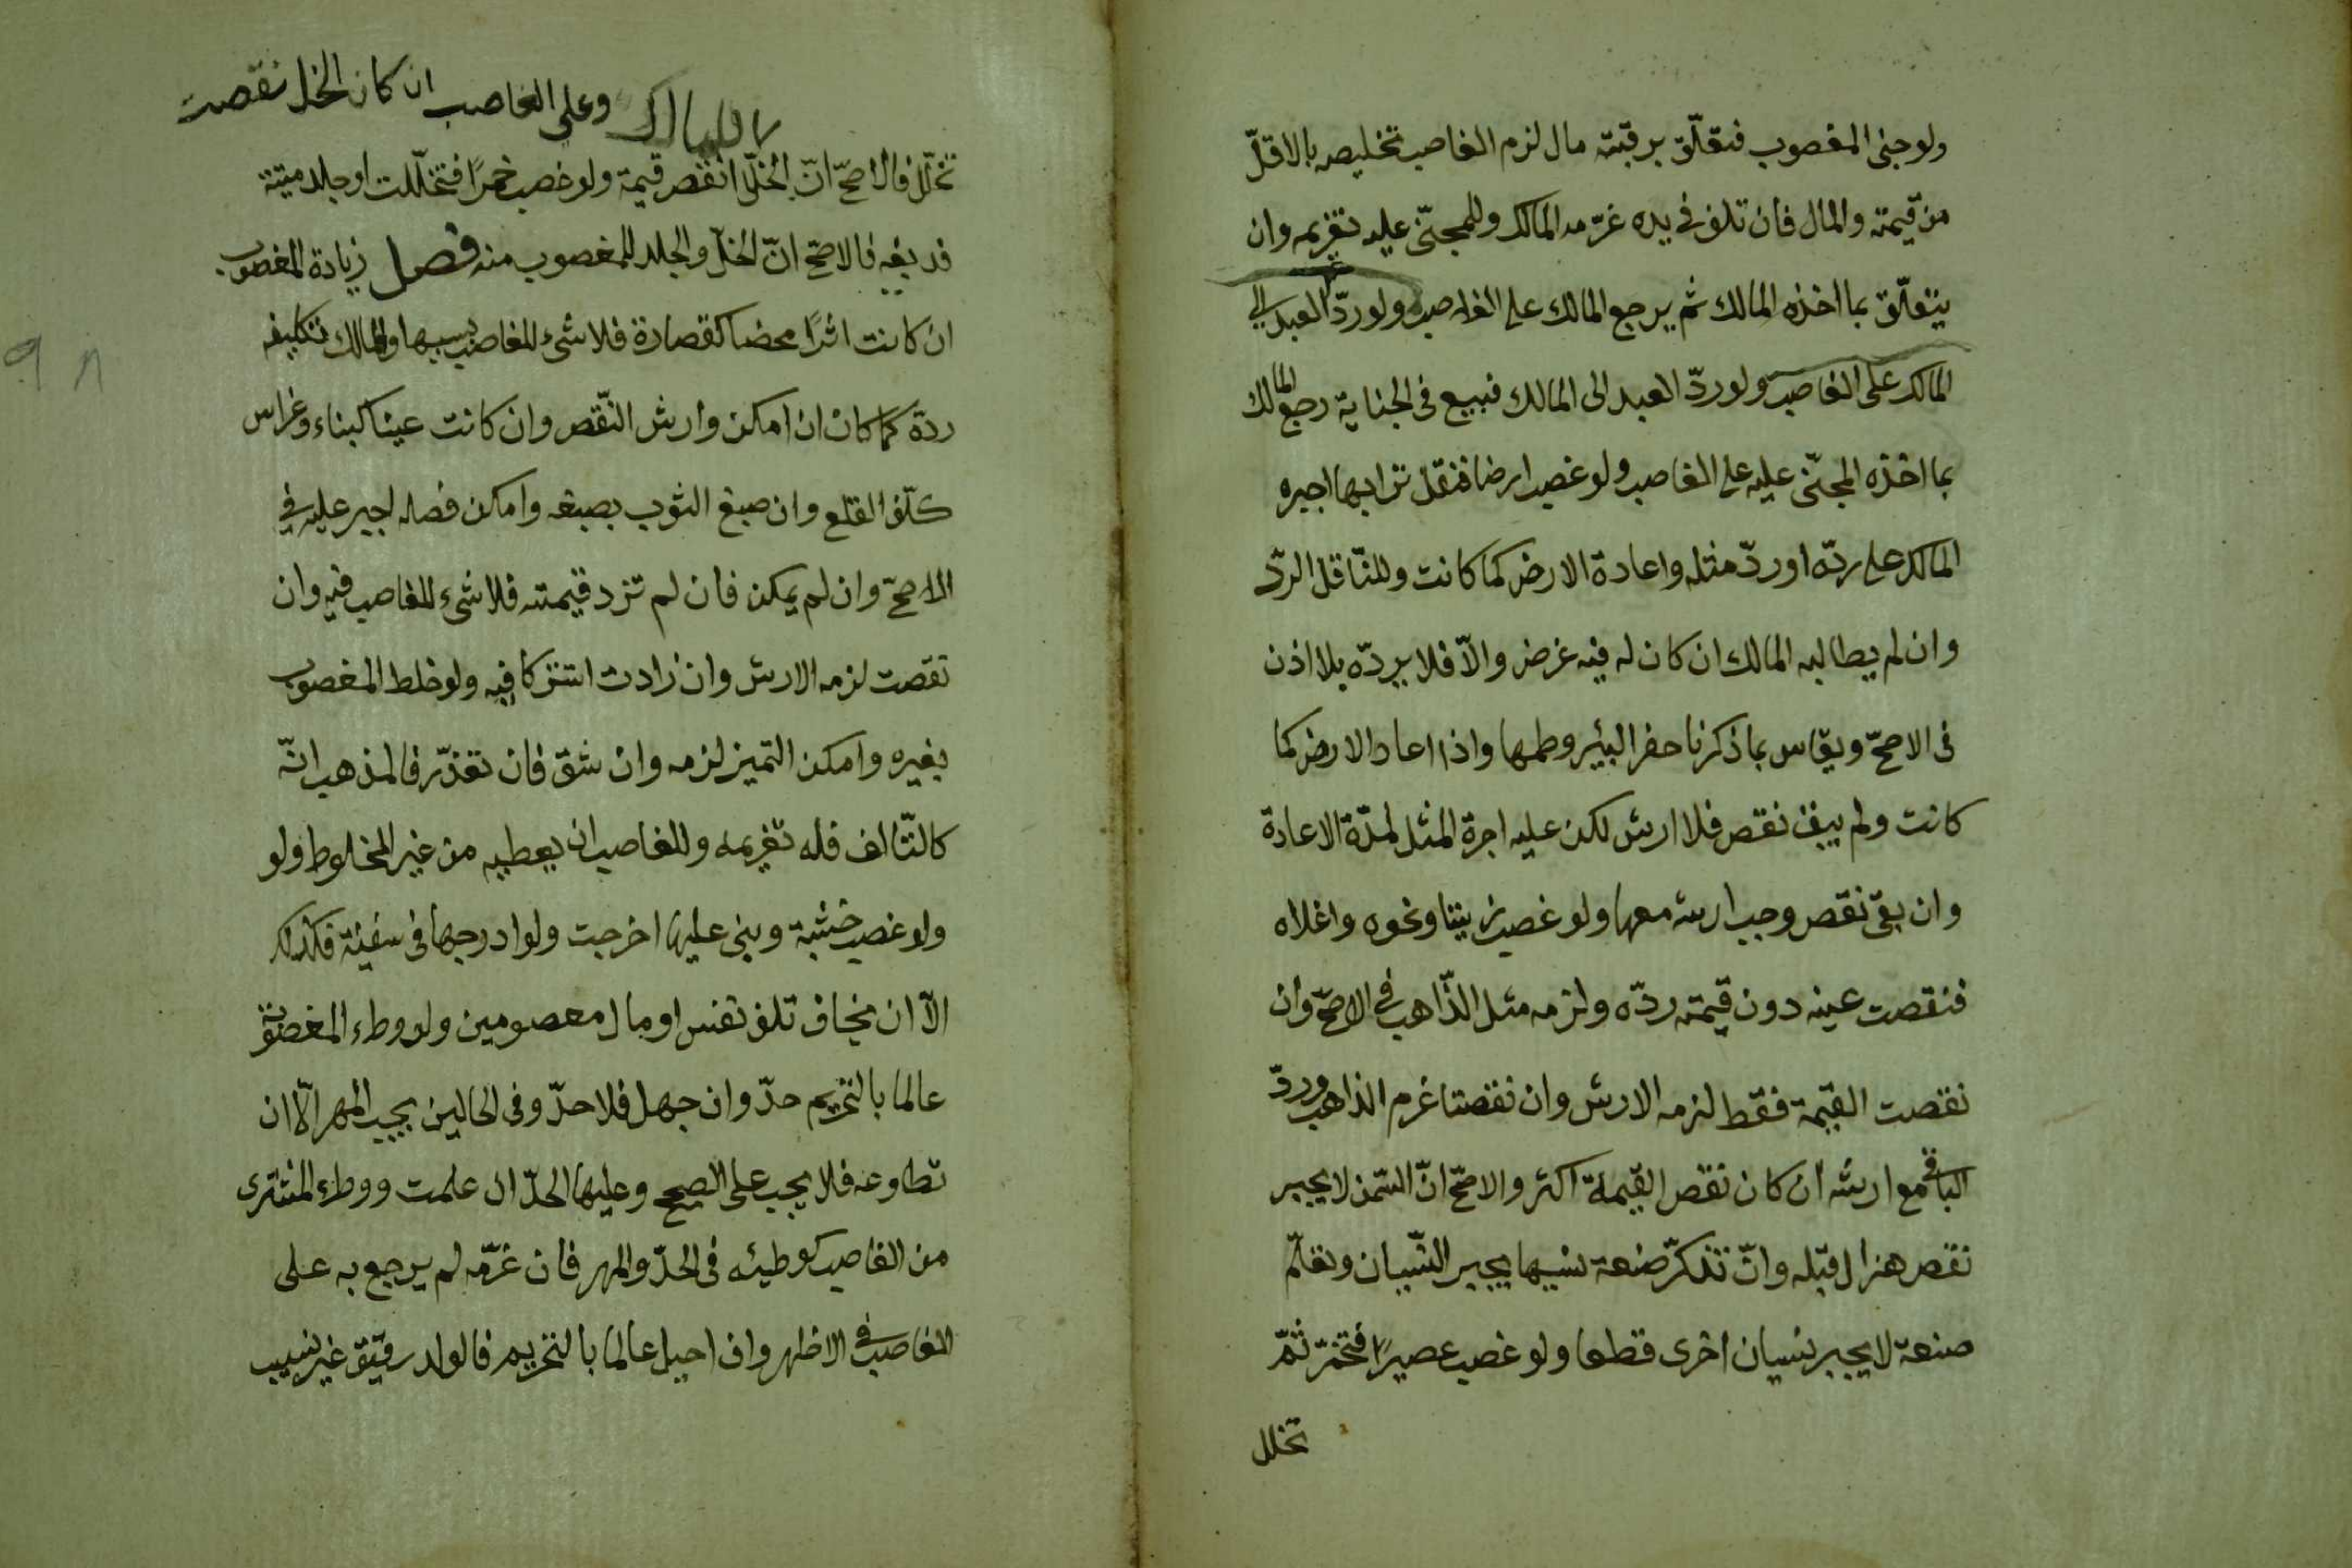 ولو جنى المغصوب فتعلّق برقبته مال لزم الغاصب تخليصه بالاقلّ
من قيمته والمال فان تلف في يده غرّمه المالك وللمجنّى عليه تغريمه وان
يتعلّق بما اخذه المالك ثم يرجع المالك على الغاصب ولو ردّ العبد الى
المالك على الغاصب ولو ردّ العبد الى المالك فبيع فى الجناية رجع المالك
بما اخذه المجنّى عليه على الغاصب ولو غصب ارضا فنقل ترابها اجبره
المالك على ردّه او ردّ مثله واعادة الارض كما كانت وللنّاقل الردّ
وان لم يطالبه المالك ان كان له فيه غرض والاّ فلا يردّه بلا اذن
فى الاصحّ ويقاس بما ذكرنا حفر البئر وطمها واذا اعاد الارض كما
كانت ولم يبق نقص فلا ارش لكن عليه اجرة المثل لمدّة الاعادة
وان بقى نقص وجب ارشه معها ولو غصب زيتا ونحوه واغلاه
فنقصت عينه دون قيمته ردّه ولزمه مثل الذّاهب فى الاصحّ وان
نقصت القيمة فقط لزمه الارش وان نقصتا غرم الذاهب وردّ
الباقى مع ارشه ان كان نقص القيمة اكثر والاصحّ انّ السّمن لا يجبر
نقص هزال قبله وانّ تذكّر صنعة نسيها يجبر النّسيان وتعلّم
صنعة لا يجبر نسيان اخرى قطعا ولو غصب عصيرًا فتخمّر ثمّ
تخلل
وعلى الغاصب ان كان الخل نقصت
تخلّل فالاصحّ انّ الخلّ انقص قيمة ولو غصب خمرًا فتخلّلت او جلد ميتة
فدبغه فالاصحّ انّ الخلّ والجلد للمغصوب منه فصل زيادة المغصوب
ان كانت اثرًا محضا كقصارة فلا شىء للغاصب بسببها وللمالك تكليفه
ردة كما كان ان امكن وارش النّقص وان كانت عينا كبناء وغراس
كلّف القلع وان صبغ الثوب بصبغه وامكن فصله اجبر عليه في
الاصحّ وان لم يمكن فان لم تزد قيمته فلا شىء للغاصب فيه وان
نقصت لزمه الارش وان زادت اشتركا فيه ولو خلط المغصوب
بغيره وامكن التميز لزمه وان شقّ فان تعذّر فالمذهب انّه
كالتّالف فله تغريمه وللغاصب ان يعطيه من غير المخلوط ولو
ولو غصب خشبة وبنى عليها اخرجت ولو ادرجها فى سفينة فكذلك
الاّ ان يخاف تلف نفس او مال معصومين ولو وطء المغصوبة
عالما بالتحريم حدّ وان جهل فلا حدّ وفى الحالين يجب المهر الاّ ان
تطاوعه فلا يجب على الصحيح وعليها الحدّ ان علمت ووطء المشترى
من الغاصب كوطيئه فى الحدّ والمهر فان غرّمه لم يرجع به على
الغاصب فى الاظهر وان احبل عالما بالتحريم فالولد رقيق غير نسيب
٩٨